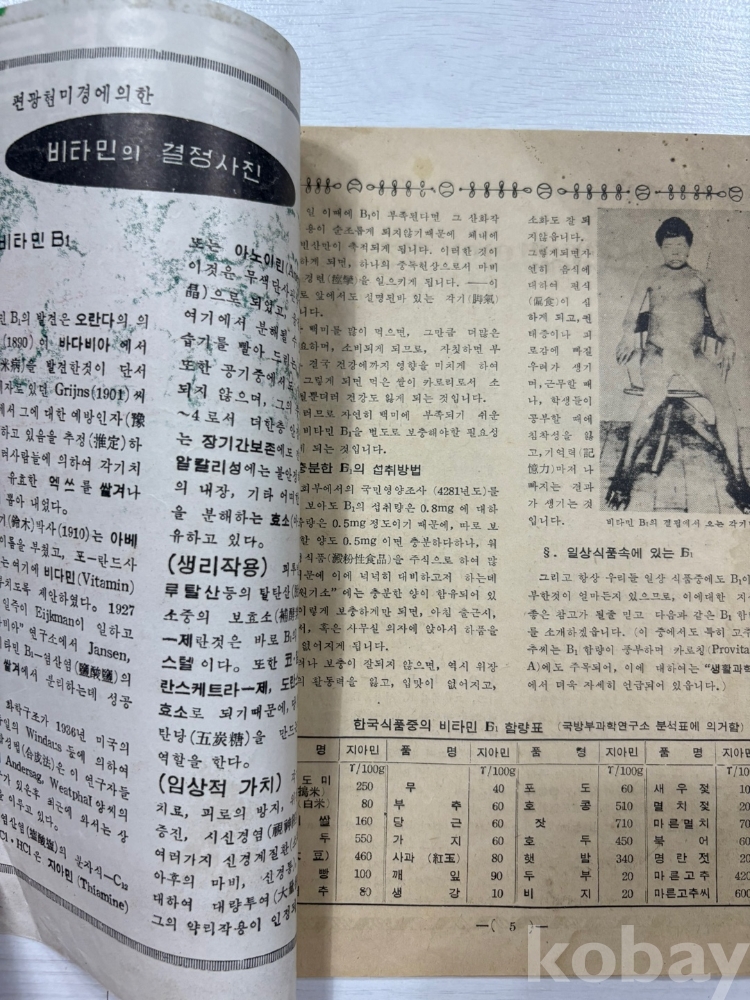 편광현미경에의한
비타민의 결정사진
비타민 B₁
민 B₁의 발견은 오란다의 의
(1890)이 바다비아에서
米病)을 발견한것이 단서
지자도 있던 Grijns(1901)씨
에서 그에 대한 예방인자(豫
하고 있음을 추정(推定)하
여사람들에 의하여 각기치
유효한 엑쓰를 쌀겨나
뽑아 내었다.
기(鈴木)박사(1910)는 아베
이름을 부쳤고, 포-란드사
는 여기에 비다민(Vitamin)
1927
일즉이 Eijkman이 일하고
연구소에서 Jansen,
비타민 B₁-염산염(鹽酸鹽)의
쌀겨에서 분리하는데 성공
화학구조가 1936년 미국의
일의 Windaus 등에 의하여
합성법(合成法)은 이 연구자들
Andersag, Westphal 양씨의
최근에 와서는 상
을 이루고 있다.
염산염(鹽酸鹽)의 분자식—C₁₂
Cl·HCl은 지아민(Thiamine)
또는 아노이린(A
이것은 무색단사
晶)으로 되었고,
여기에서 분해될
습기를 빨아
또한 공기중에서
되지 않으며, 그의
~4로서 더한층
는 장기간보존에
알칼리성에는 불안
의 내장, 기타 어
을 분해하는 효소(
유하고 있다.
(생리작용)
루탈산등의 탈탄산(
소중의 보효소(補酵
一제란것은 바로 B₁의
스텔이다. 또한 코
란스케트라ー제, 도란
효소로 되기때문에,
탄당(五炭糖)을 만드
역할을 한다.
(임상적 가치)
치료, 피로의 방지,
증진, 시신경염(視神
여러가지 신경계질환(
아후의 마비, 신경통
대하여 대량투여(大量
그의 약리작용이 인정
일 이때에 B₁이 부족된다면 그 산화작
용이 순조롭게 되지않기때문에 체내에
변산만이 축적되게 됩니다. 이러한 것이
하게 되면, 하나의 중독현상으로서 마비
경련(痙攣)을 일으키게 됩니다. ——이
로 앞에서도 설명된바 있는 각기(脚氣)
니다.
백미를 많이 먹으면, 그만큼 더많은
요하며, 소비되게 되므로, 자칫하면 부
결국 건강에까지 영향을 미치게 하여
그렇게 되면 먹은 쌀이 카로리로서 소
될뿐더러 건강도 잃게 되는 것입니다.
러므로 자연히 백미에 부족되기 쉬운
비타민 B₁을 별도로 보충해야할 필요성
게 되는 것입니다.
충분한 B₁의 섭취방법
리부에서의 국민영양조사 (4281년도)를
보아도 B₁의 섭취량은 0.8mg에 대하
유량은 0.5mg 정도이기 때문에, 따로 보
한 양도 0.5mg 이면 충분하다하나, 워
식품(澱粉性食品)을 주식으로 하여 많
문에 이에 넉넉히 대비하고저 하는데
원기소"에는 충분한 양이 함유되어 있
이렇게 보충하게만 되면, 아침 출근시,
서, 혹은 사무실 의자에 앉아서 하품을
없어지게 됩니다.
러나 보충이 잘되지 않으면, 역시 위장
의 활동력을 잃고, 입맛이 없어지고,
소화도 잘 되
지않읍니다.
그렇게되면자
연히 음식에
대하여 편식
(偏食)이 심
하게 되고, 권
태증이나 피
로감에 빠질
우려가 생기
며, 근무할 때
나, 학생들이
공부할 때에
침착성을 잃
고, 기억력(記
憶力)마저 나
빠지는 결과
가 생기는 것
입니다.
비타민 B₁의 결핍에서 오는 각기
§. 일상식품속에 있는 B₁
그리고 항상 우리들 일상 식품중에도 B₁이
부한것이 얼마든지 있으므로, 이에대한 지
좋은 참고가 될줄 믿고 다음과 같은 B₁ 함량
를 소개하겠읍니다. (이 중에서도 특히 고추
추씨는 B₁ 함량이 풍부하며 카로칭(Provita
A)에도 주목되어, 이에 대하여는 "생활과학
에서 더욱 자세히 언급되어 있읍니다.)
한국식품중의 비타민 B₁ 함량표 (국방부과학연구소 분석표에 의거함)
명 지아민 품 명 지아민 품 명 지아민 품 명 지아민
γ/100g γ/100g γ/100g γ/100
도미(搗米) 250 무 40 포도 60 새우젖 10
(白米) 80 부추 60 호콩 510 멸치젖 20
쌀 160 당근 60 잣 710 마른멸치 70
두 550 가지 60 호두 450 북어 60
豆) 460 사과(紅玉) 80 햇밤 340 명란젓 20
빵 100 깨잎 90 두부 20 마른고추 420
추 80 생강 10 비지 20 마른고추씨 600
—( 5 )—
kobay